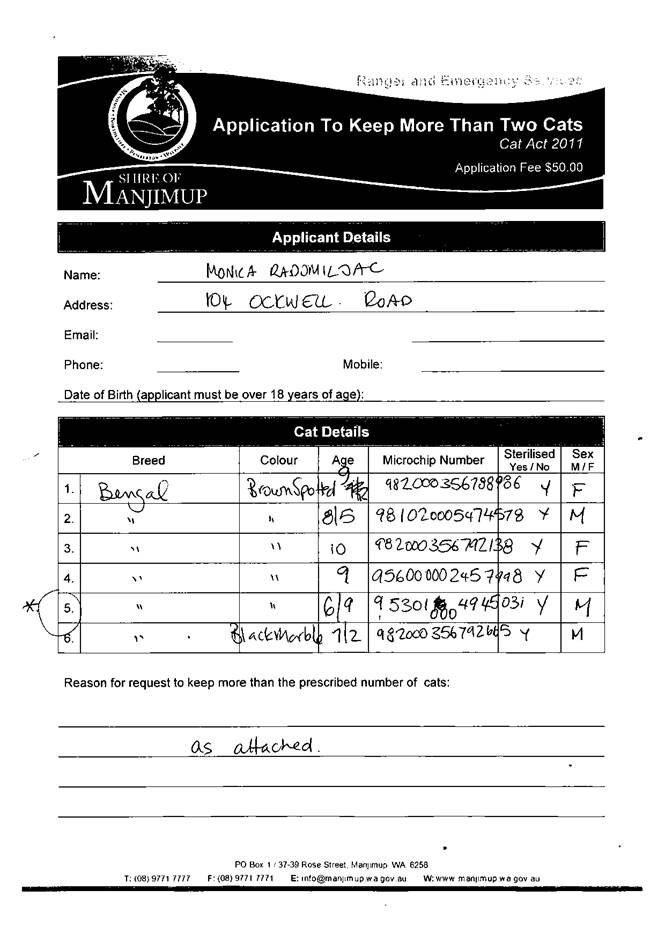 Ranger and Emergency Services
Application To Keep More Than Two Cats
Cat Act 2011
Application Fee $50.00
SHIRE OF
MANJIMUP
Applicant Details
Name: MONICA RADOMILJAC
Address: 104 OCKWELL ROAD
Email:
Phone: Mobile:
Date of Birth (applicant must be over 18 years of age):
Cat Details
Breed Colour Age Microchip Number Sterilised Yes / No Sex M / F
1. Bengal Brown Spotted 9 Y F
2. " " 8/5 Y M
3. " " 10 982000356792138 Y F
4. " " 9 956000002457998 Y F
5. " " 6/9 Y M
6. " Black Marble 7/2 982000356792665 Y M
Reason for request to keep more than the prescribed number of cats:
as attached.
PO Box 1 / 37-39 Rose Street, Manjimup WA 6258
T: (08) 9771 7777 F: (08) 9771 7771 E: info@manjimup.wa.gov.au W: www.manjimup.wa.gov.au